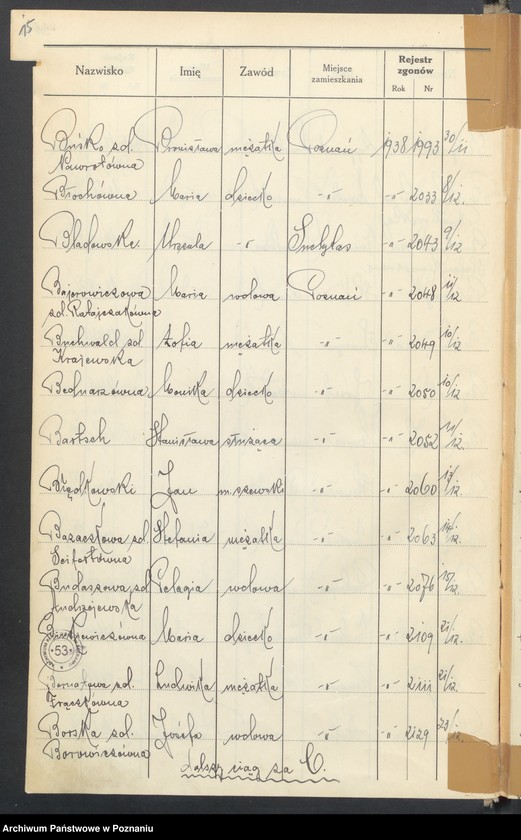 15
Nazwisko Imię Zawód Miejsce zamieszkania Rejestr zgonów
Rok Nr
Buśko zd. Bronisława mężatka Poznań 1938 1993 30/11
Nawrotówna
Błochówna Maria dziecko -"- -"- 2033 8/12.
Bladowska Urszula -"- Swełzlas -"- 2043 9/12
Bajerowiczowa Maria wdowa Poznań -"- 2048 11/12
zd. Ratajczakówna
Buchwald zd. Zofia mężatka -"- -"- 2049 10/12
Krajewska
Bednarzówna Monika dziecko -"- -"- 2050 10/12.
Bartsch Stanisława służąca -"- -"- 2052 11/12.
Błędkowski Jan m. szewski -"- -"- 2060 13/12.
zd. Stefania mężatka -"- -"- 2063 14/12.
Seifertówna
Budaszowa zd. Pelagia wdowa -"- -"- 2076 15/12.
Andrzejewska
Maria dziecko -"- -"- 2109 21/12.
53
Bernatowa zd. Ludwika mężatka -"- -"- 2111 21/12.
Frąckówna
Borska zd. Józefa wdowa -"- -"- 2129 23/12.
Borowiczówna
dalszy ciąg za C.
Archiwum Państwowe w Poznaniu